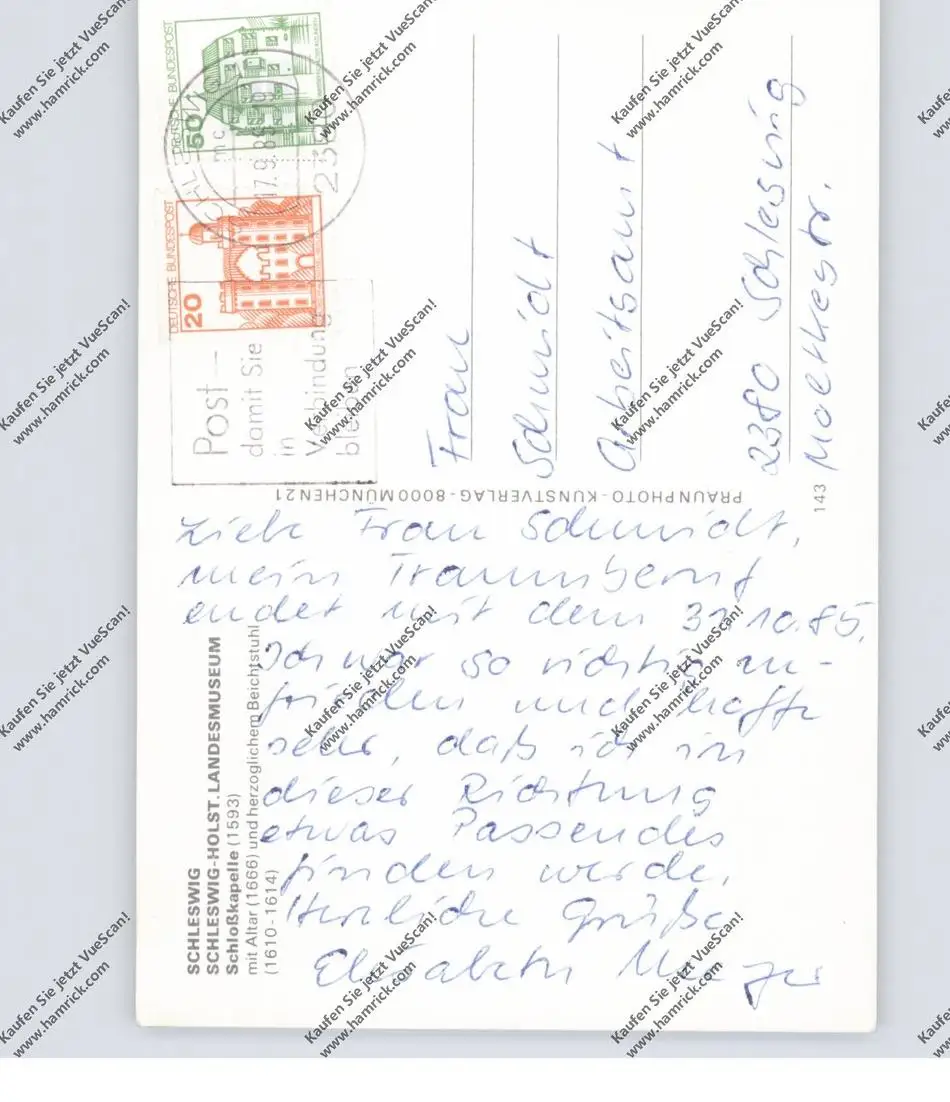 DEUTSCHE BUNDESPOST
50
DEUTSCHE BUNDESPOST
20
mc
17.9.85
23
Post -
damit Sie
in
Verbindung
bleiben
Frau
Schmidt
Arbeitsamt
2380 Schleswig
Moltkestr.
143
PRAUN PHOTO - KUNSTVERLAG - 8000 MÜNCHEN 21
Liebe Frau Schmidt,
mein Traumberuf
endet mit dem 31.10.85.
Ich war so richtig zu-
frieden und hoffe
sehr, daß ich in
dieser Richtung
etwas Passendes
finden werde.
Herzliche Grüße
Elisabeth
SCHLESWIG
SCHLESWIG-HOLST. LANDESMUSEUM
Schloßkapelle (1593)
mit Altar (1666) und herzoglichem Beichtstuhl
(1610-1614)
Kaufen Sie jetzt VueScan!
www.hamrick.com